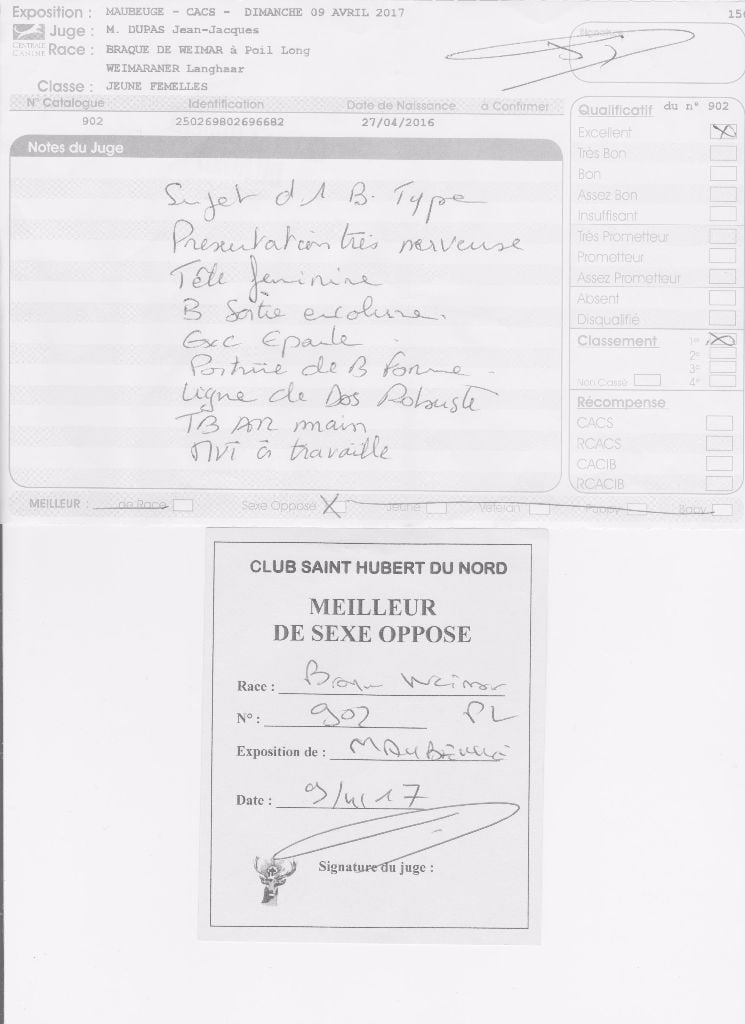 Exposition : MAUBEUGE - CACS - DIMANCHE 09 AVRIL 2017
Juge : M. DUPAS Jean-Jacques
CENTRALE CANINE
Race : BRAQUE DE WEIMAR à Poil Long
WEIMARANER Langhaar
Classe : JEUNE FEMELLES
Signature
N° Catalogue Identification Date de Naissance à Confirmer
902 250269802696682 27/04/2016
Notes du Juge
Sujet d 1 B. Type
Presentation très nerveuse
Tête feminine
B Sortie encolure.
Exc Epaule
Poitrine de B forme
Ligne de Dos Robuste
TB AR main
MVT à travaille
Qualificatif du n° 902
Excellent
Très Bon
Bon
Assez Bon
Insuffisant
Très Prometteur
Prometteur
Assez Prometteur
Absent
Disqualifié
Classement 1er
2e
3e
Non Classé 4e
Récompense
CACS
RCACS
CACIB
RCACIB
MEILLEUR : de Race Sexe Opposé Jeune Vétéran Puppy Baby
CLUB SAINT HUBERT DU NORD
MEILLEUR
DE SEXE OPPOSE
Race : Braque Weimar
N° : 902 PL
Exposition de : MAUBEUGE
Date : 9/4/17
Signature du juge :